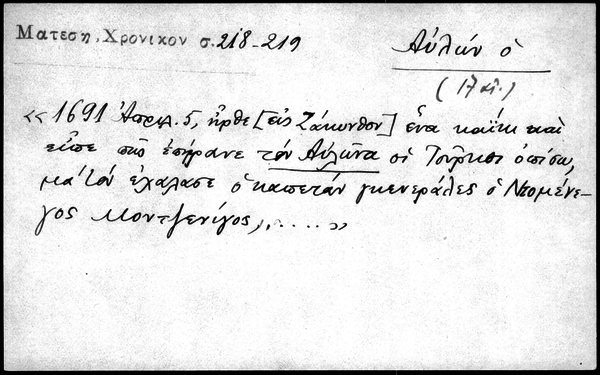 Ματεση, Χρονικον σ. 218-219
Αὐλών ὁ
(17 αἰ.)
«1691 Ἀπριλ. 5, ἦρθε [εἰς Ζάκυνθον] ἕνα καΐκι καὶ
εἶπε πῶς ἐπήρανε τὸν Αὐλῶνα οἱ Τοῦρκοι ὀπίσω,
μὰ τὸν ἐχάλασε ὁ καπετὰν γκενεράλες ὁ Ντομένε-
γος Μοντζενίγος, .....»